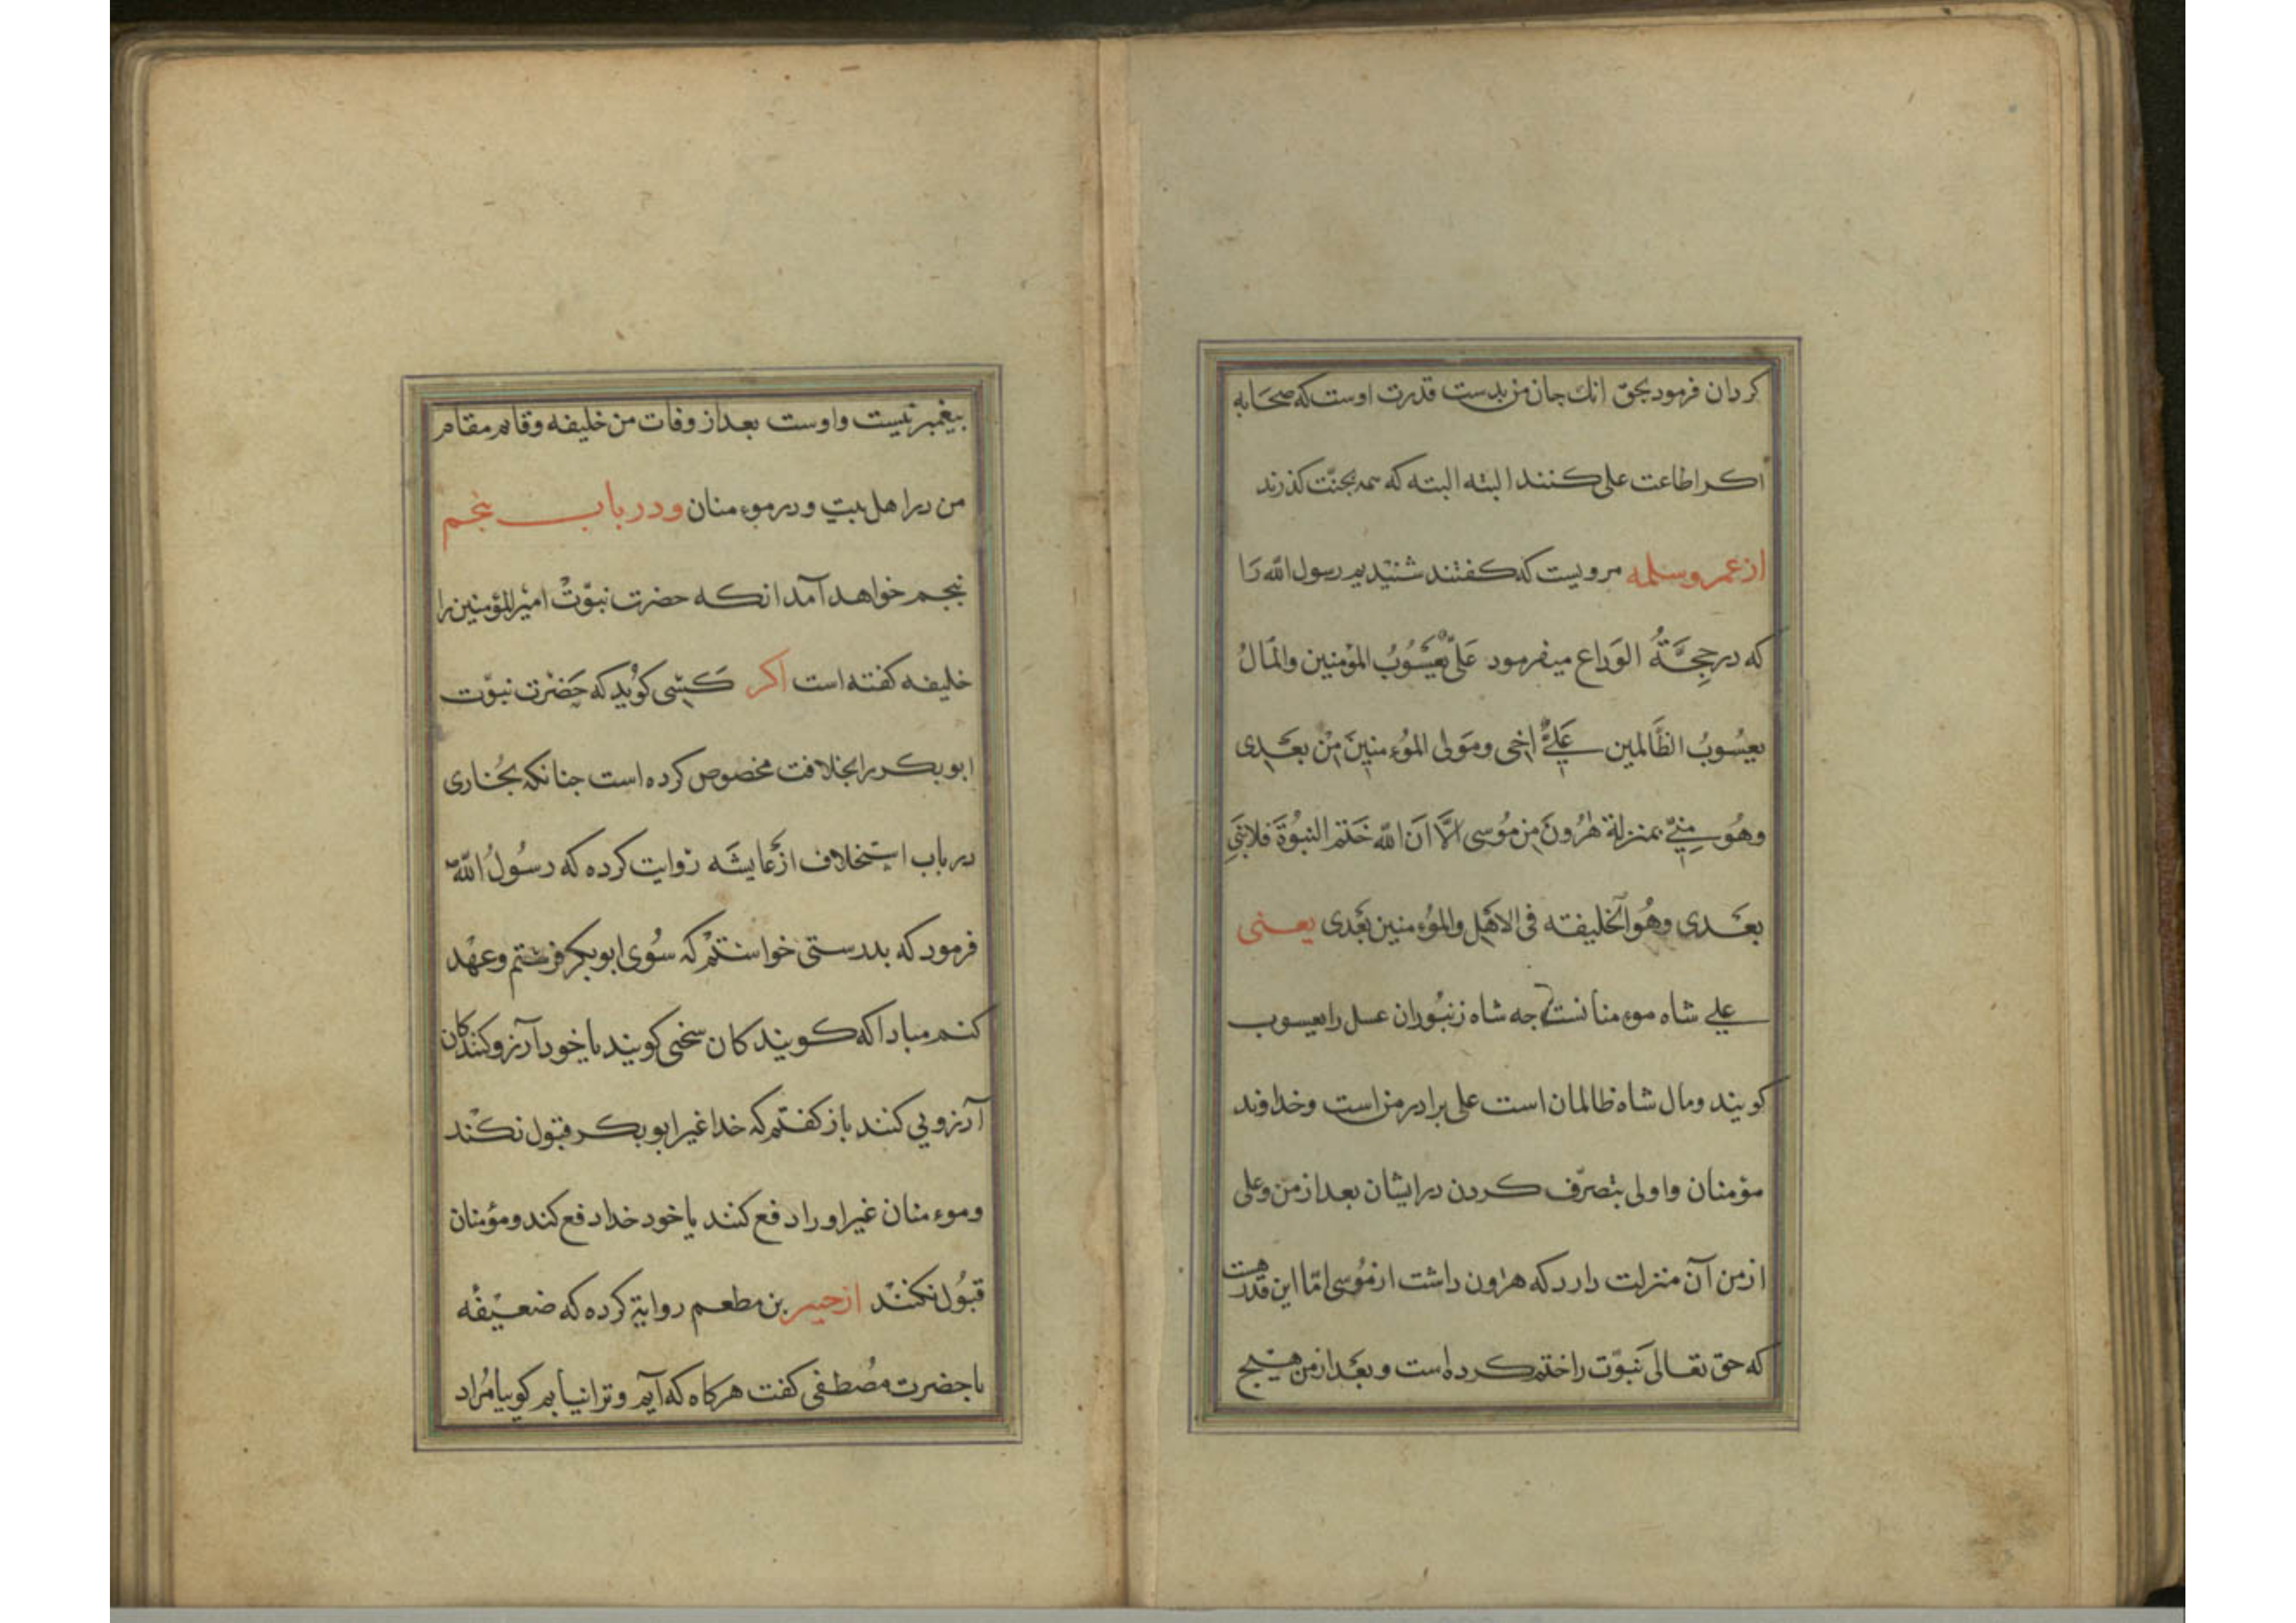 کردان فرمود بحق انك جان من بدست قدرت اوست که صحابه
اکر اطاعت علی کنند البته البته که همه بجنّت کذرند
از عمر و سلمه مرویست که کفتند شنیدیم رسول اللّه رَا
که در حِجَّةُ الوَداع میفرمود عَلیٌّ یَعْسُوبُ المؤمنین والمَالُ
یعسُوبُ الظَالمین عَلِیٌّ اَخِی ومَولی المؤمنینَ مِنْ بعَدِی
وهُو مِنّی بمنزلة هٰرُونَ مِن مُوسی الَّا اَنَ اللّه خَتَم النبُوّةَ فلانَبیَ
بعَدی وهُوَ الخلیفته فی الاهَل والمؤمنین بَعْدی یعنی
علی شاه مومنانست چه شاه زنبُوران عسل را یعسوب
کویند ومال شاه ظالمان است علی برادر من است وخداوند
مؤمنان واولی بتصرّف کردن در ایشان بعد از من وعلی
از من آن منزلت دارد که هٰرون داشت از مُوسی امّا این قدر هست
که حق تعالی نبوّت را ختم کرده است و بعد از من هیچ
پیغمبر نیست واوست بعد از وفات من خلیفه وقایم مقام
من در اهل بیت و در مومنان و در باب پنجم
پنجم خواهد آمد انکه حضرت نبوّتْ امیر المؤمنین را
خلیفه کفته است اکر کَسی کوید که حَضرت نبوّت
ابوبکر را بخلافت مخصوص کرده است چنانکه بُخاری
در باب استخلاف از عَایشَه روایت کرده که رسُولُ اللّه
فرمود که بدرستی خواستم که سُوی ابوبکر فرستم وعهْد
کنم مبادا که کویند کان سخنی کویند یا خود آرزو کنندکان
آرزویی کنند باز کفتم که خدا غیر ابوبکر قبول نکند
ومومنان غیر او را دفع کنند یا خود خدا دفع کند ومؤمنان
قبُول نکنند از جبیر بن مطعم روایة کرده که ضعیفه
با حضرت مُصْطفی کفت هرکاه که آیم وترا نیابم کوییا مُراد